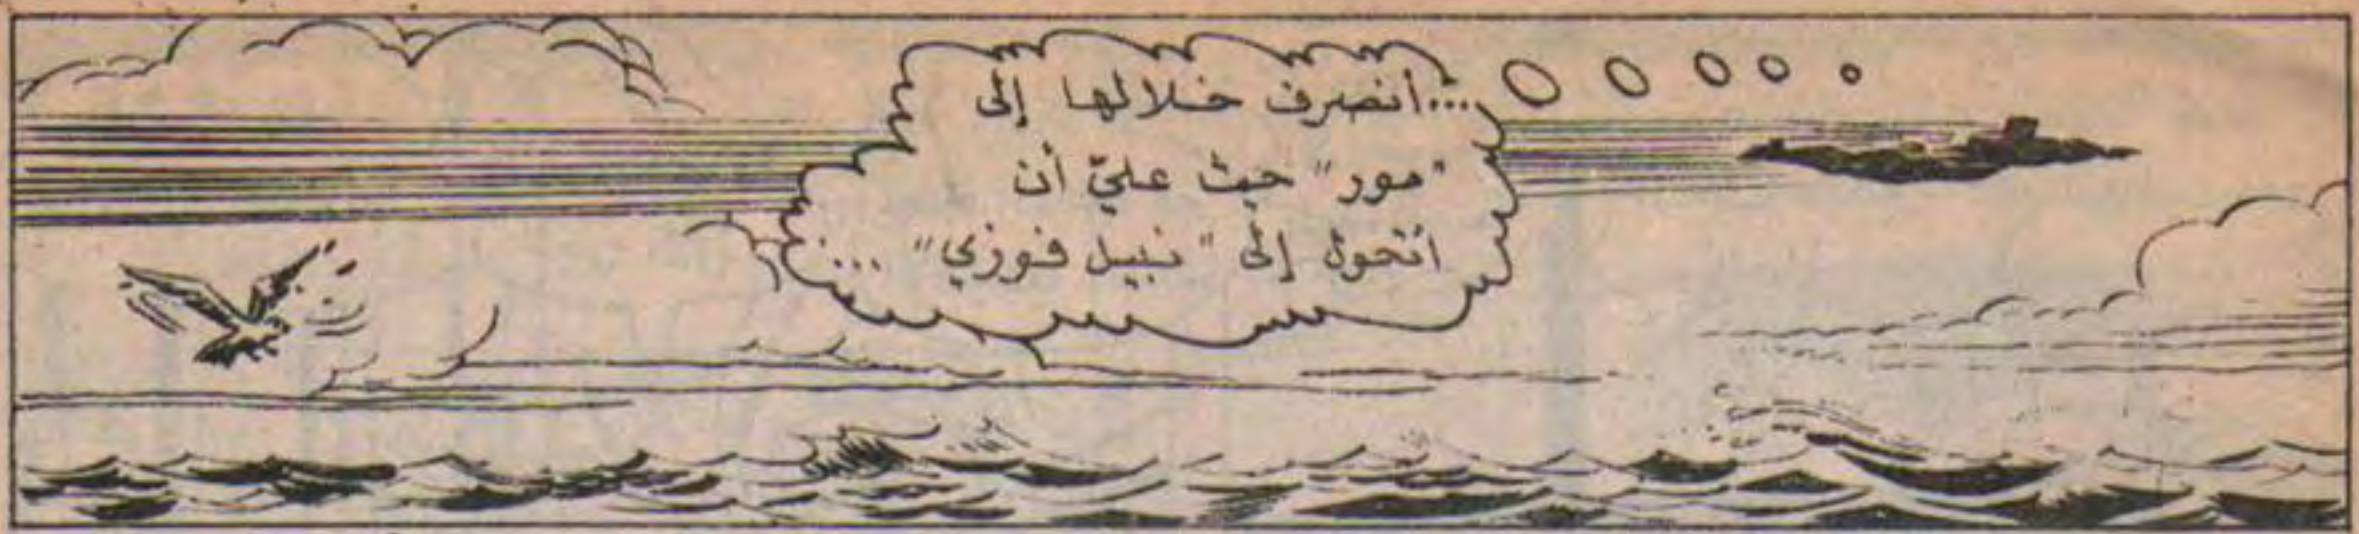 ...أنصرف خلالها إلى
"صور" حيث عليّ أن
أتحول إلى "نبيل فوزي"...